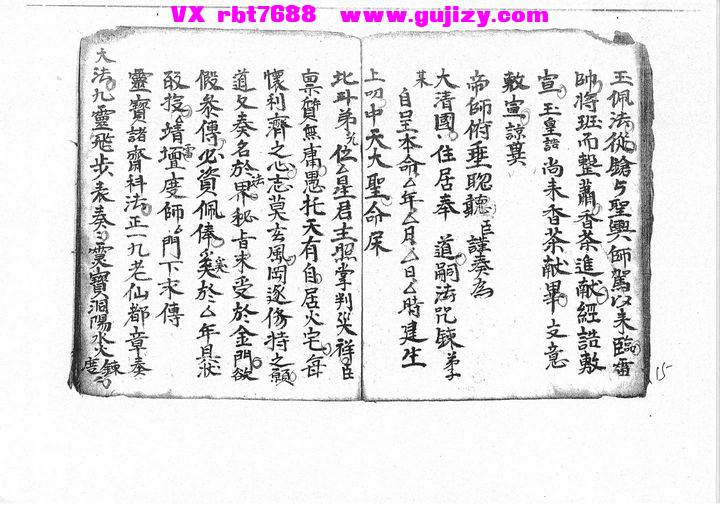 VX rbt7688 www.gujizy.com
玉佩法從鎗与聖輿師駕以来臨雷
帥將班而整肅香茶進献經誥敷
宣玉皇誥尚来香茶献畢文意
敷宣諒異
帝師俯垂聦聽臣謹奏為
大清國住居奉道嗣法咒鍊弟子
某自呈本命厶年厶月厶日厶時建生
上叩中天大聖命属
北斗弟九位厶星君主照掌判災祥臣
禀質無庸愚托天有自居火宅每
懷利濟之心志莫玄風罔逐傷持之願
道文奏名於法界秘旨未受於金門欲
假叅傳必資佩俸奚於厶年具狀
敬投靖雷壇度師門下求傳
靈寶諸齋科法正一九老仙都章奏
大法九靈飛步表奏灵寳洞陽水火鍊度
15